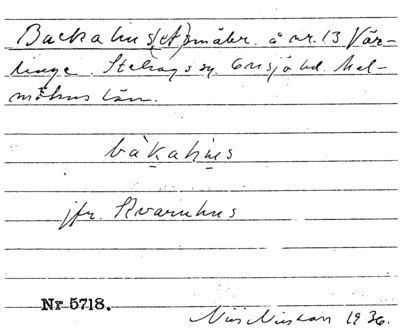 Backahus(et) måbr. å nr. 13 Vär-
linge. Stehags sn. Onsjö hd. Mal-
möhus län.
bàkahus
jfr. Kvarnhus
Nr 5718.
Nils Nilsson 1936.